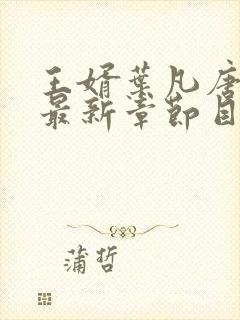 王婿叶凡唐
最新章节目
蒲哲